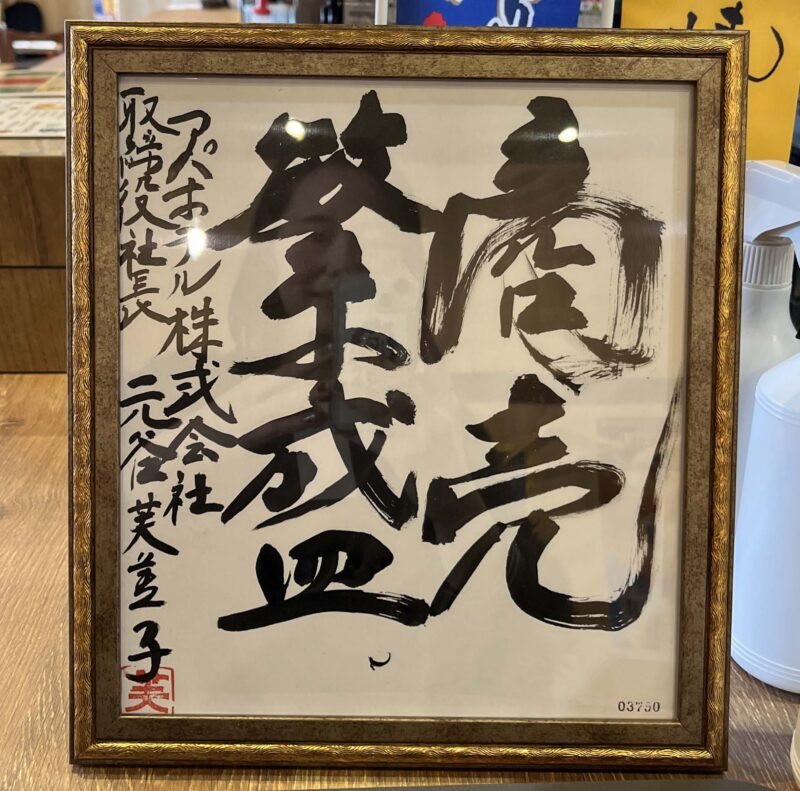 商売
繁盛
アパホテル株式会社
取締役社長 元谷芙美子
美
03790